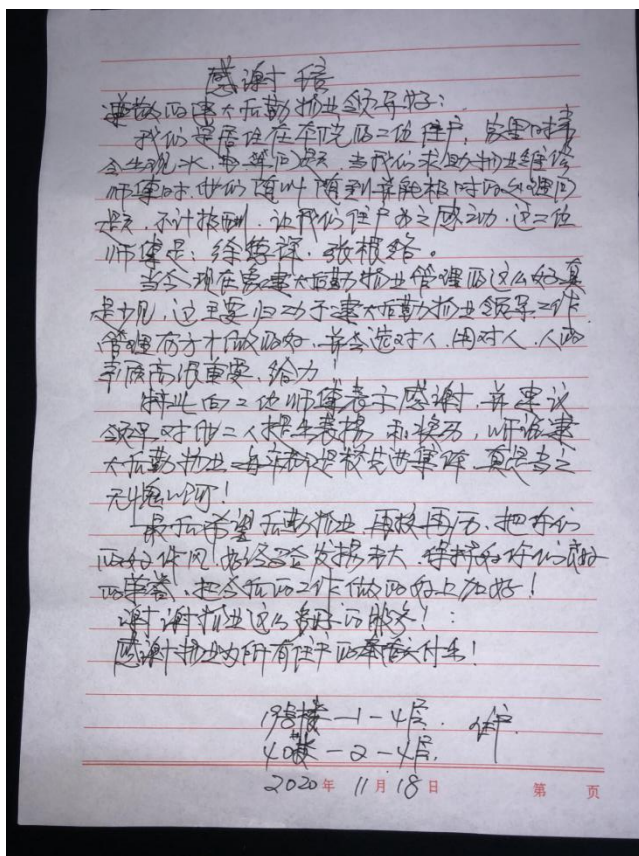 感谢信
尊敬的建大后勤物业领导好：
我们是居住在本院的二位住户，家里时常
会出现水、电等问题，当我们求助物业维修
师傅时，他们随叫随到并能及时的处理问
题，不计报酬，让我们住户为之感动，这二位
师傅是：徐 张根
当今现在 建大后勤物业管理的这么好真
是少见，这主要归功于建大后勤物业领导工作
管理有方才做的好，并会选对人，用对人，人的
素质高很重要，给力！
特此向二位师傅表示感谢，并建议
领导对他二人提出表扬和奖励，听说建
大后勤物业每年都是校先进集体，真是当之
无愧啊！
最后希望后勤物业，再接再厉，把你们
的好作风，好经验发扬光大，保持好你们良好
的荣誉，把今后的工作做的好上加好！
谢谢物业这么好的服务！
感谢物业为所有住户的奉献付出！
19号楼－1－4层. 住户
40楼－2－4层.
2020年 11月18日
第 页